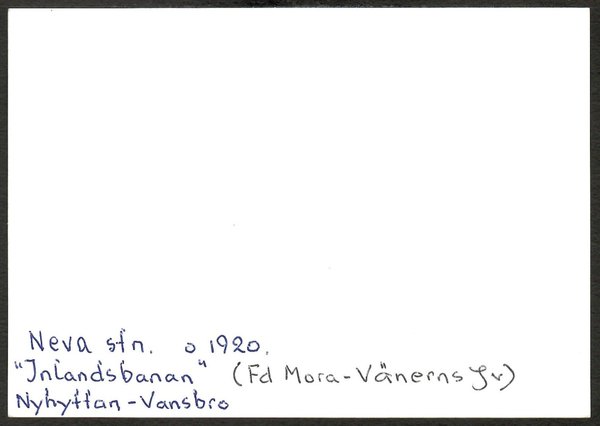 Neva stn. o 1920.
"Inlandsbanan" (Fd Mora-Vänerns Jv)
Nyhyttan-Vansbro